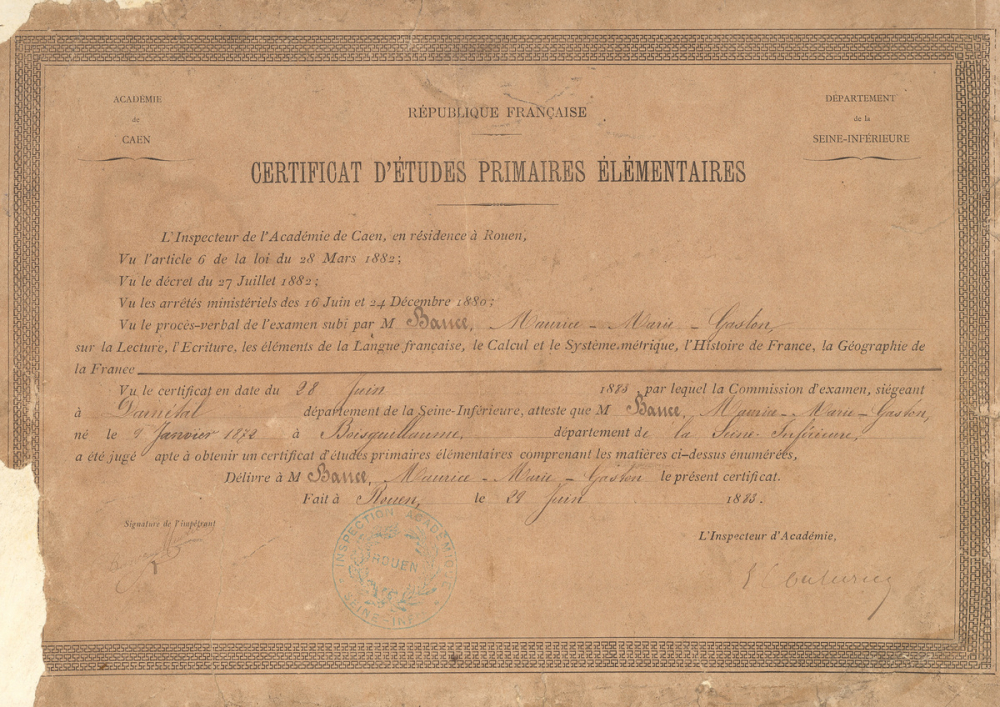 ACADÉMIE
de
CAEN
RÉPUBLIQUE FRANÇAISE
DÉPARTEMENT
de la
SEINE-INFÉRIEURE
CERTIFICAT D'ÉTUDES PRIMAIRES ÉLÉMENTAIRES
L'Inspecteur de l'Académie de Caen, en résidence à Rouen,
Vu l'article 6 de la loi du 28 Mars 1882;
Vu le décret du 27 Juillet 1882;
Vu les arrêtés ministériels des 16 Juin et 24 Décembre 1880;
Vu le procès-verbal de l'examen subi par M Bance, Maurice - Marie - Gaston
sur la Lecture, l'Ecriture, les éléments de la Langue française, le Calcul et le Système métrique, l'Histoire de France, la Géographie de
la France
Vu le certificat en date du 28 Juin 1883 par lequel la Commission d'examen, siégeant
à Darnétal département de la Seine-Inférieure, atteste que M Bance, Maurice - Marie - Gaston,
né le 9 Janvier 1872 à Boisguillaume, département de la Seine-Inférieure,
a été jugé apte à obtenir un certificat d'études primaires élémentaires comprenant les matières ci-dessus énumérées,
Délivre à M Bance, Maurice - Marie - Gaston le présent certificat.
Fait à Rouen, le 29 Juin 1883.
Signature de l'impétrant
L'Inspecteur d'Académie,
INSPECTION ACADÉMIE
ROUEN
SEINE-INF